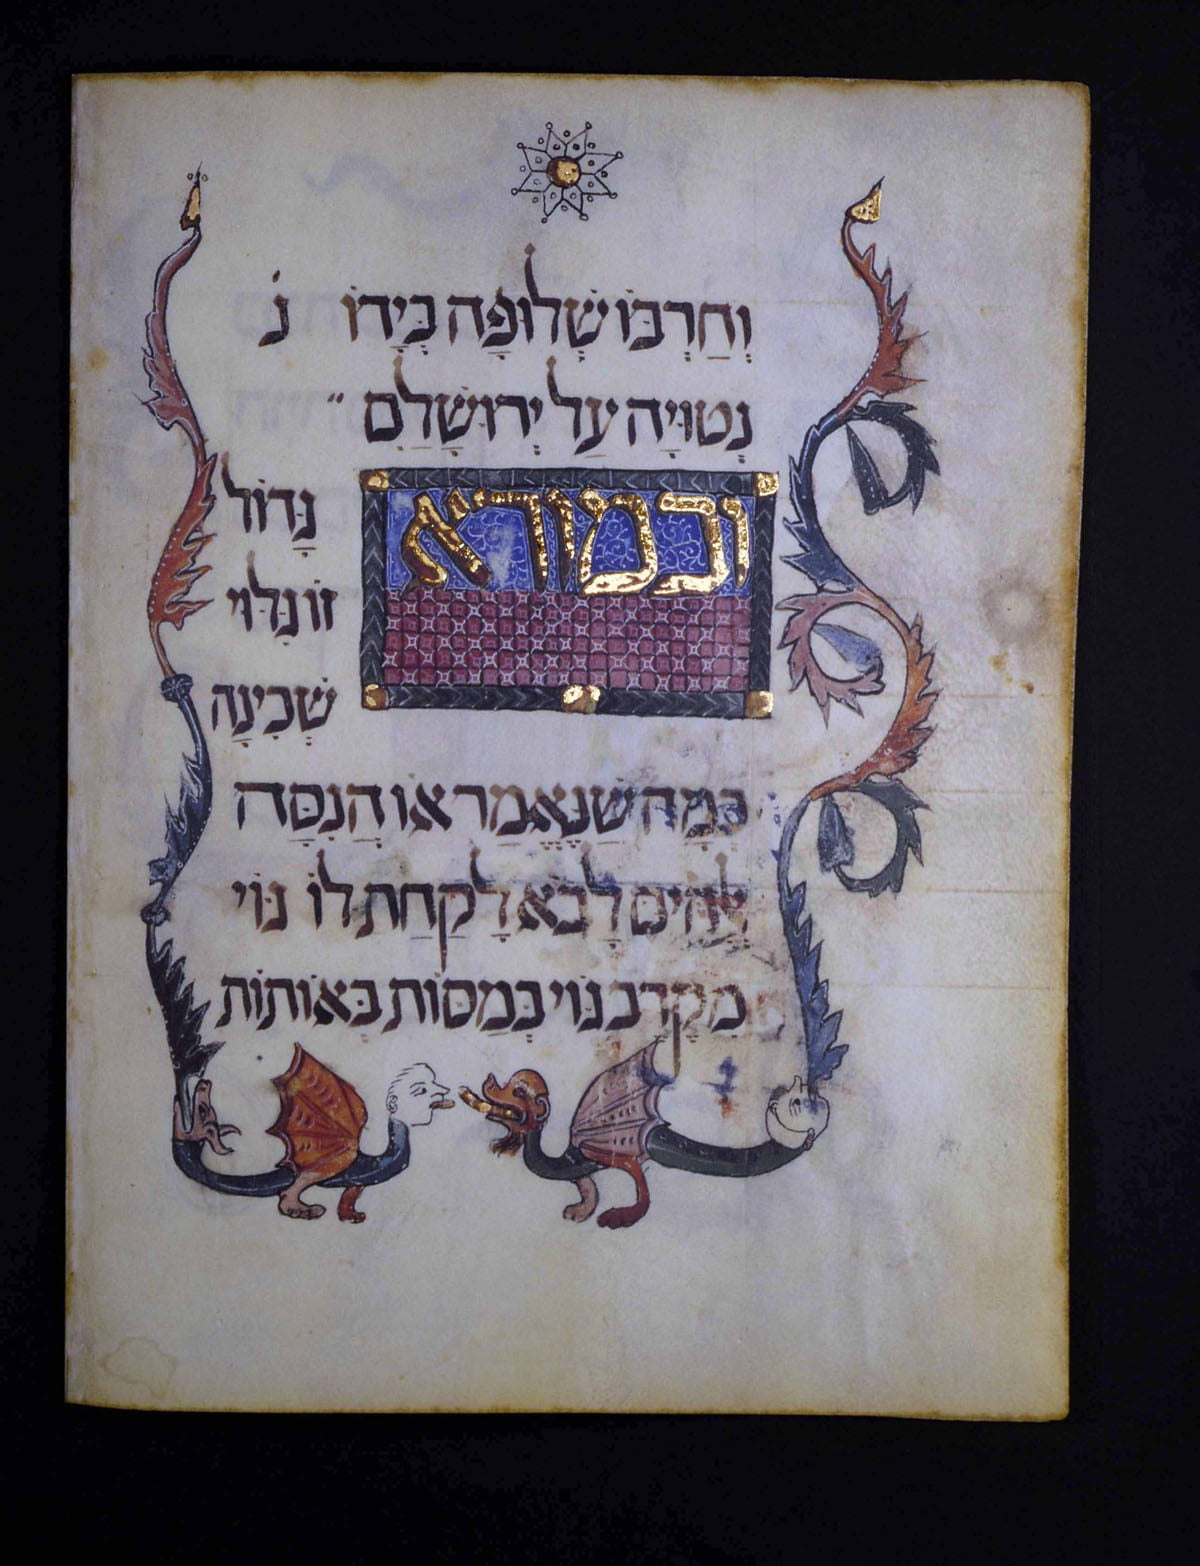 וְחַרְבּוֹ שְׁלוּפָה בְּיָדוֹ נ
נְטוּיָה עַל יְרוּשָׁלִַם
ובמורא
גָּדוֹל
זוֹ גִּלּוּי
שְׁכִינָה
כְּמָה שֶׁנֶּאֱמַר אוֹ הֲנִסָּה
אֱלֹהִים לָבֹא לָקַחַת לוֹ גּוֹי
מִקֶּרֶב גּוֹי בְּמַסּוֹת בְּאוֹתוֹת